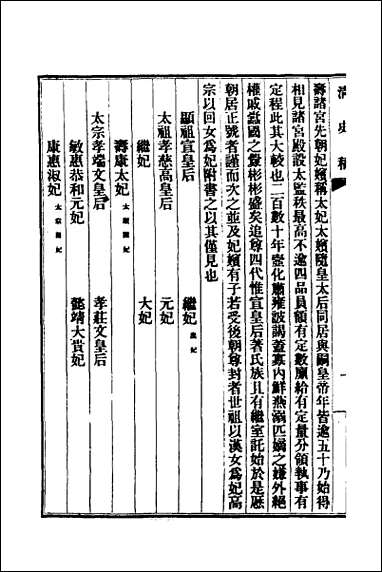 清史稿
壽諸宮先朝妃嬪稱太妃太嬪隨皇太后同居與嗣皇帝年皆逾五十乃始得
相見諸宮殿設太監秩最高不逾四品員額有定數廩給有定量分領執事有
定程此其大較也二百數十年壼化肅雍詖謁蓋寡內鮮燕溺匹嫡之嫌外絕
權戚蠹國之釁彬彬盛矣追尊四代惟宣皇后著氏族且有繼室託始於是歷
朝居正號者謹而次之並及妃嬪有子若受後朝尊封者世祖以漢女爲妃高
宗以回女爲妃附書之以其僅見也
顯祖宣皇后 繼妃 庶妃
太祖孝慈高皇后 元妃
繼妃 大妃
壽康太妃 太祖諸妃
太宗孝端文皇后 孝莊文皇后
敏惠恭和元妃 懿靖大貴妃
康惠淑妃 太宗諸妃
一